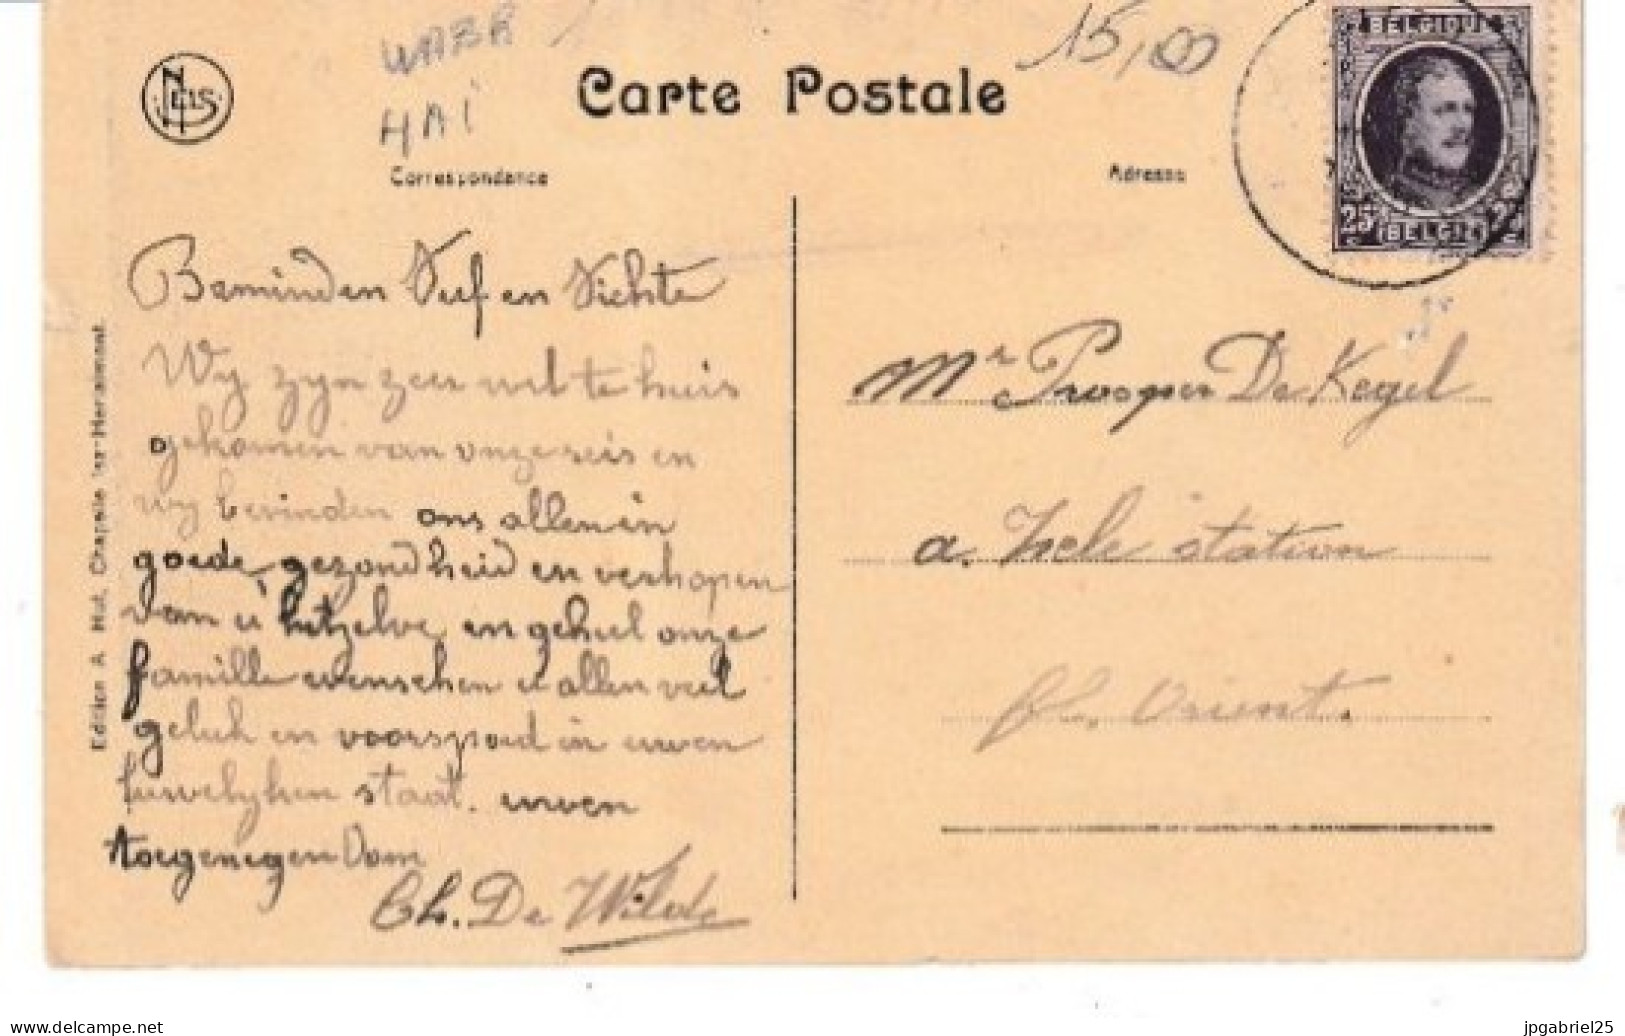 NELS
WABR
HAI
Carte Postale
15,00
BELGIQUE
25 c
BELGIË
Correspondance
Adresse
Edition A. Hut, Chapelle lez-Herlaimont.
Beminden Neef en Nichte
Wy zyn zeer wel te huis
gekomen van onze reis en
wy bevinden ons allen in
goede gezondheid en verhopen
van u hetzelve en geheel onze
familie wenschen u allen veel
geluk en voorspoed in uwen
huwelyken staat. uwen
toegenegen Oom
Ch. De Wilde
Mr Prosper De Kegel
a. Zele station
Fl. Orient.
jpgabriel25